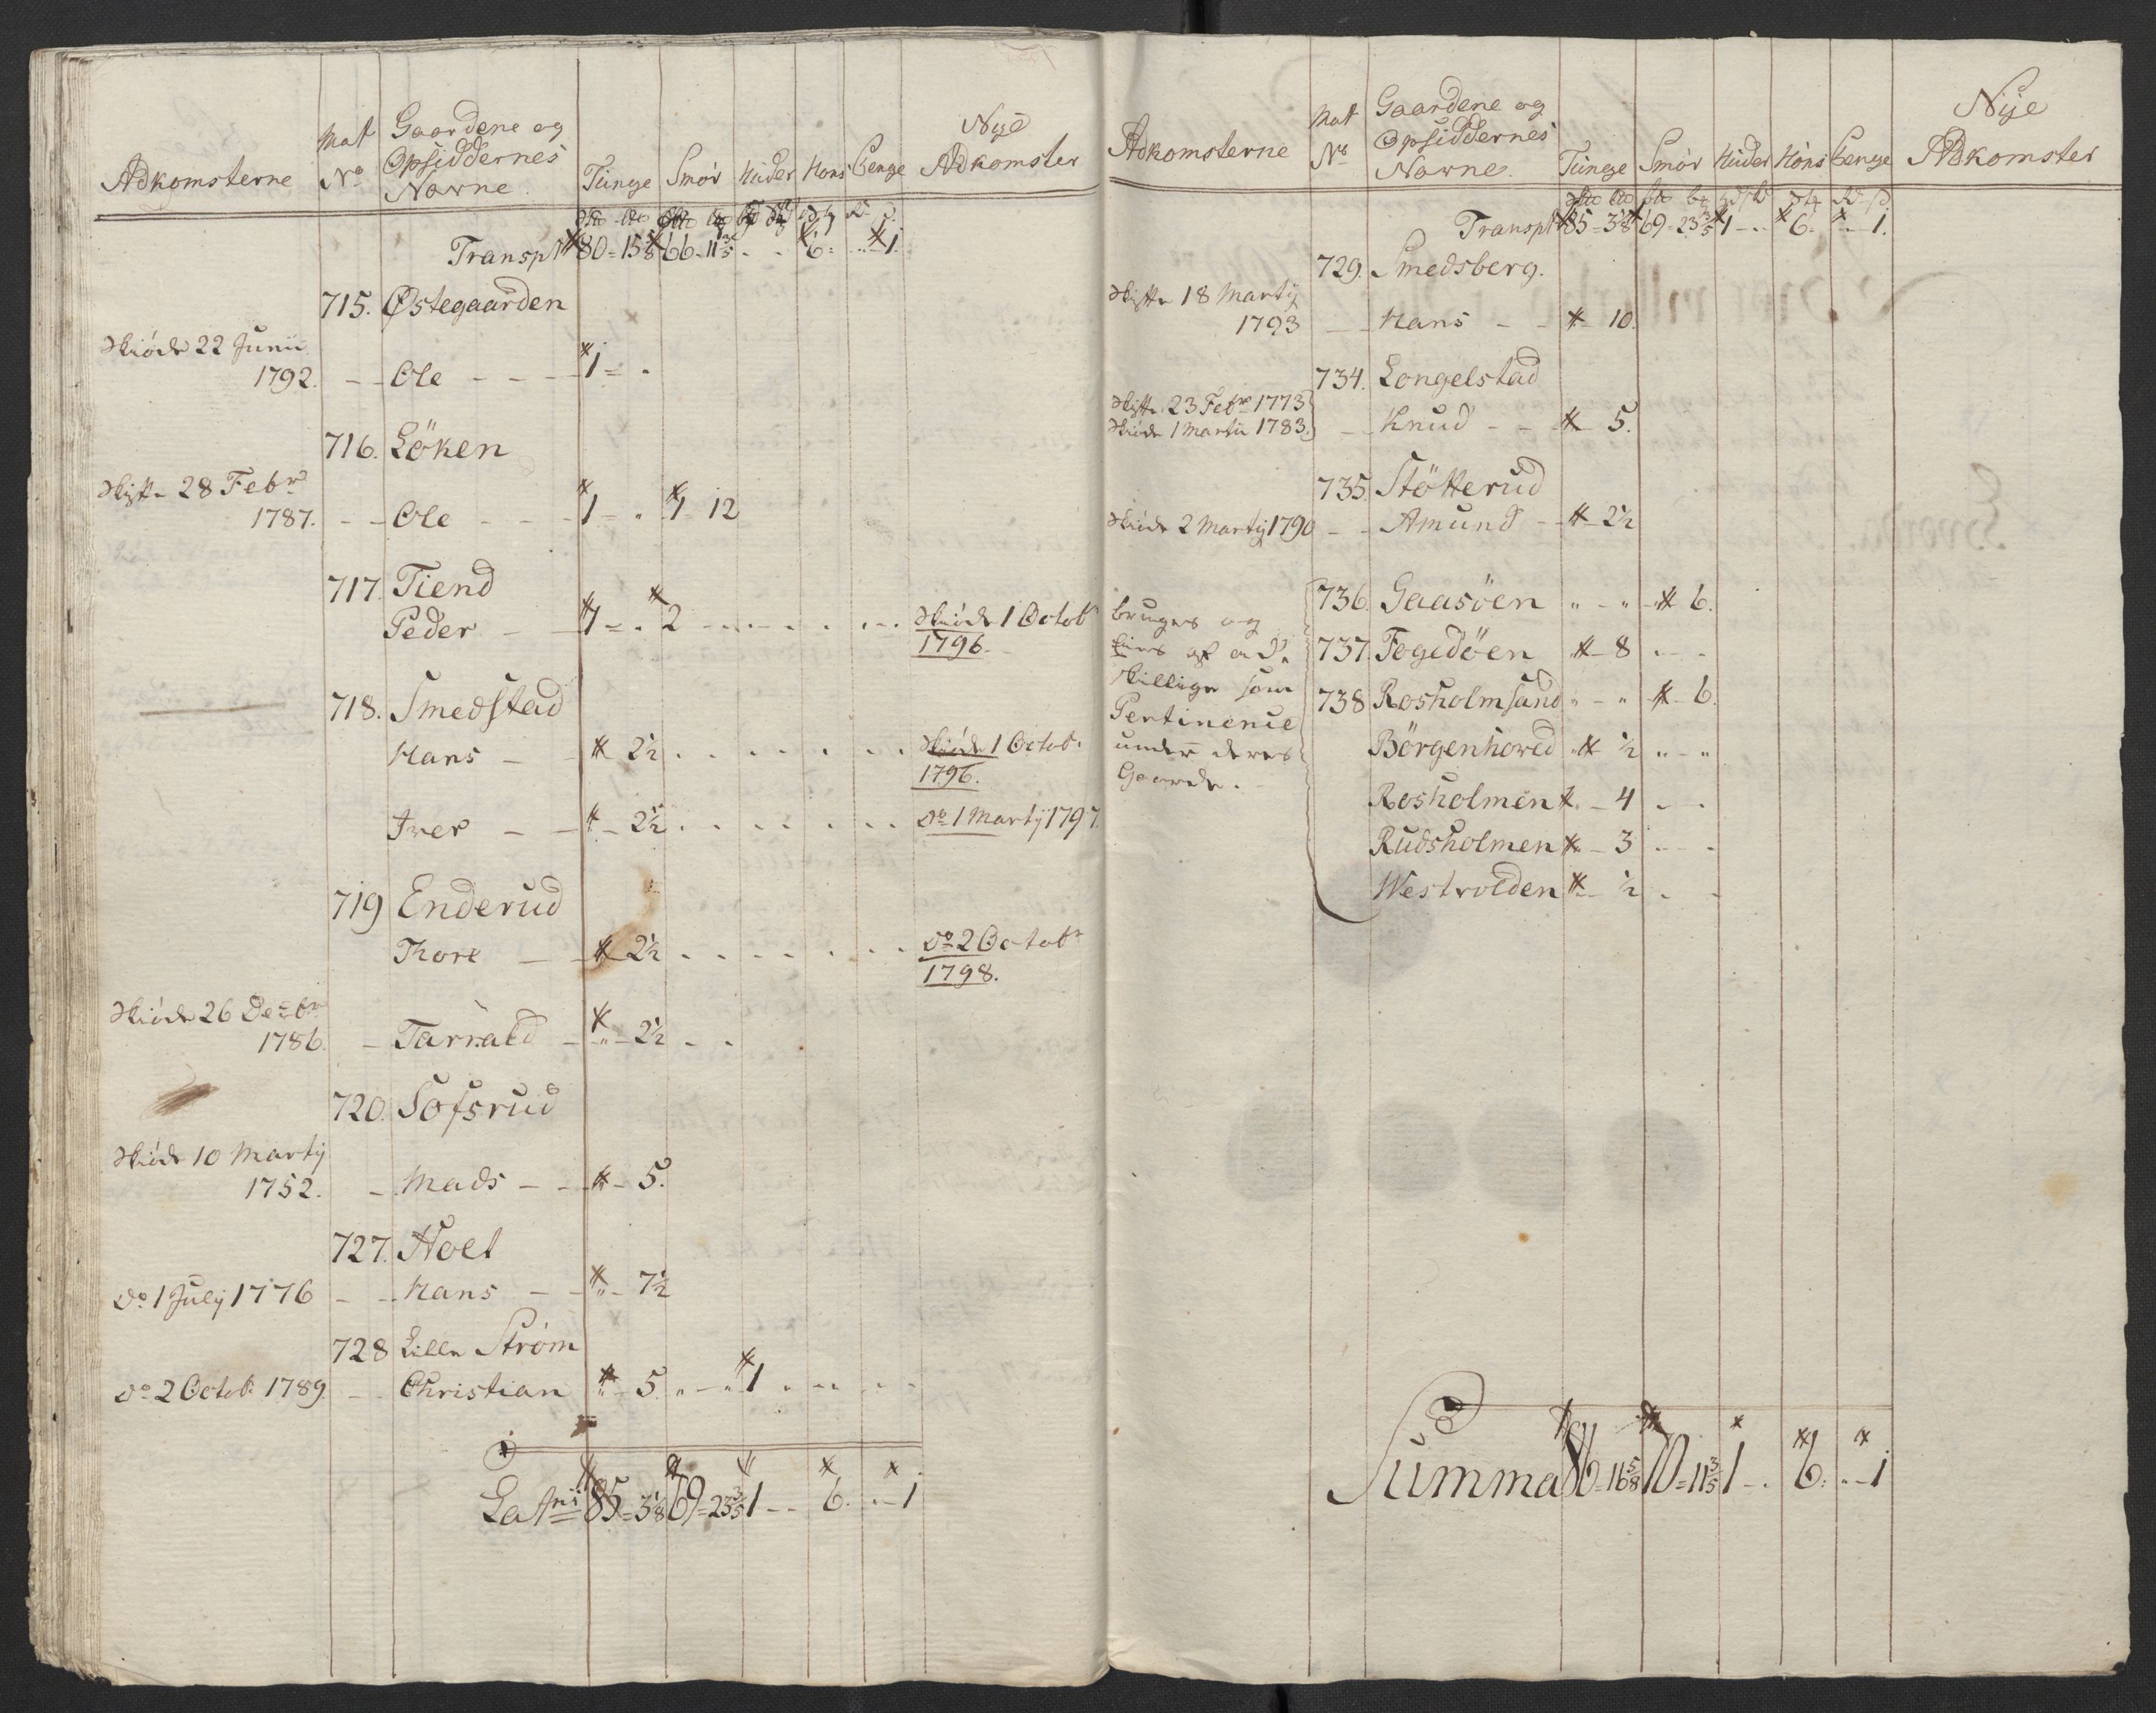 Adkomsterne Mat No Gaardene og Opsiddernes Navne Tunge Smør Huder Hons Penge Nye Adkomster
Transpt 80 = 15 5/8 66 - 11 3/5 - - 6 = " - 1.
715. Østegaarden
Skiöde 22 Junii
1792. - - Ole - - - 1 = "
716. Löken
Skifte 28 Febr
1787. - - Ole - - - 1 - " 1 12
717. Tiend
Peder - - 1 = " 2 - - - - - - Skiöde 1 Octob
1796.
718. Smedstad
Hans - - 2½ - - - - - - Skiöde 1 Octob.
1796.
Iver - - 2½ - - - - - - Do 1 Martij 1797.
719 Enderud
Thore - - 2½ - - - - - - Do 2 Octobr
1798.
Skiöde 26 Decbr
1786. - Tarrald - " - 2½ - -
720. Sofsrud
Skiöde 10 Martij
1752. - Mads - - - 5.
727. Noet
Do 1 July 1776 - - Hans - - " - 7½
728 Lille Strøm
Do 2 Octob. 1789. - - Christian " - 5. " - " 1 - - - -
Latris 85 = 3 1/8 69 = 23 3/5 1 - - 6. " - 1
Adkomsterne Mat No Gaardene og Opsiddernes Navne. Tunge Smør Huder Höns Penge Nye Adkomster
Transpt 85 = 3 1/8 69 - 23 3/5 1 - - 6. " - 1.
729. Smedsberg.
Skifte 18 Martij
1793 - - Hans - - - 10.
734. Longelstad
Skifte 23 Febr 1773
Skiöde 1 Martii 1783. - - Knud - - - 5.
735. Stötterud
Skiöde 2 Martij 1790 - - Amund - - 2½
736. Gaasöen " - " - 6.
bruges og
eies af ad-
skillige som
Pertinencie
under deres
Gaarde.
737. Fogedöen - 8 - -
738 Rosholmsund " - " - 6.
Börgenhoved - ½ " - "
Rosholmen - 4 - -
Rudsholmen - 3 - -
Westvolden - ½ - -
Summa 86 = 16 5/8 70 = 11 3/5 1 - - 6. " - 1